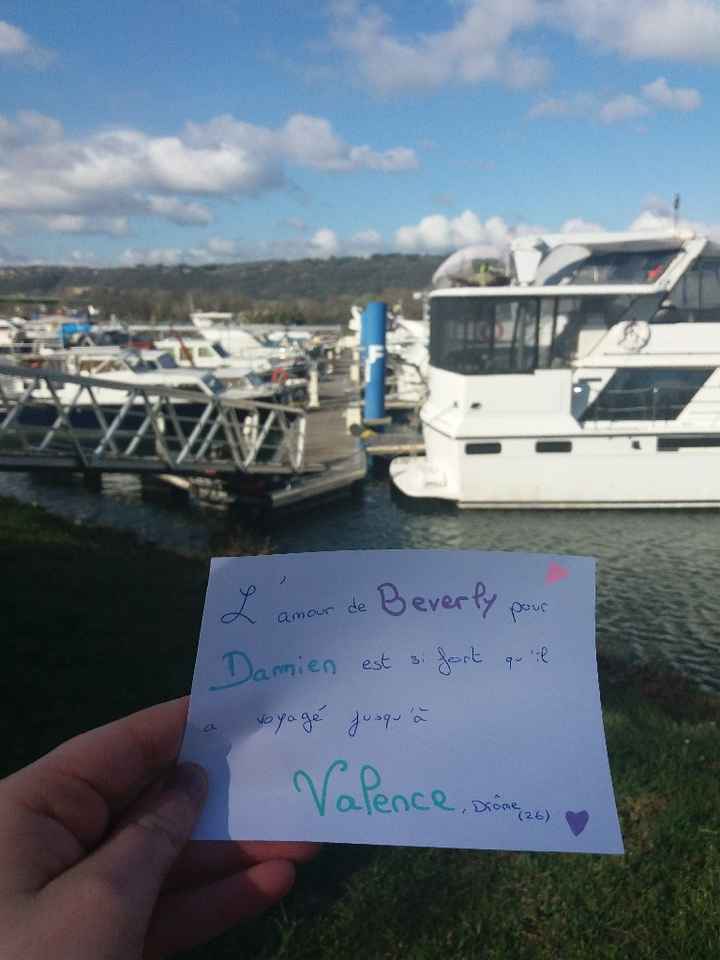 F
L'amour de Beverly pour
Damien est si fort qu'il
a voyagé jusqu'à
Valence, Drôme (26)